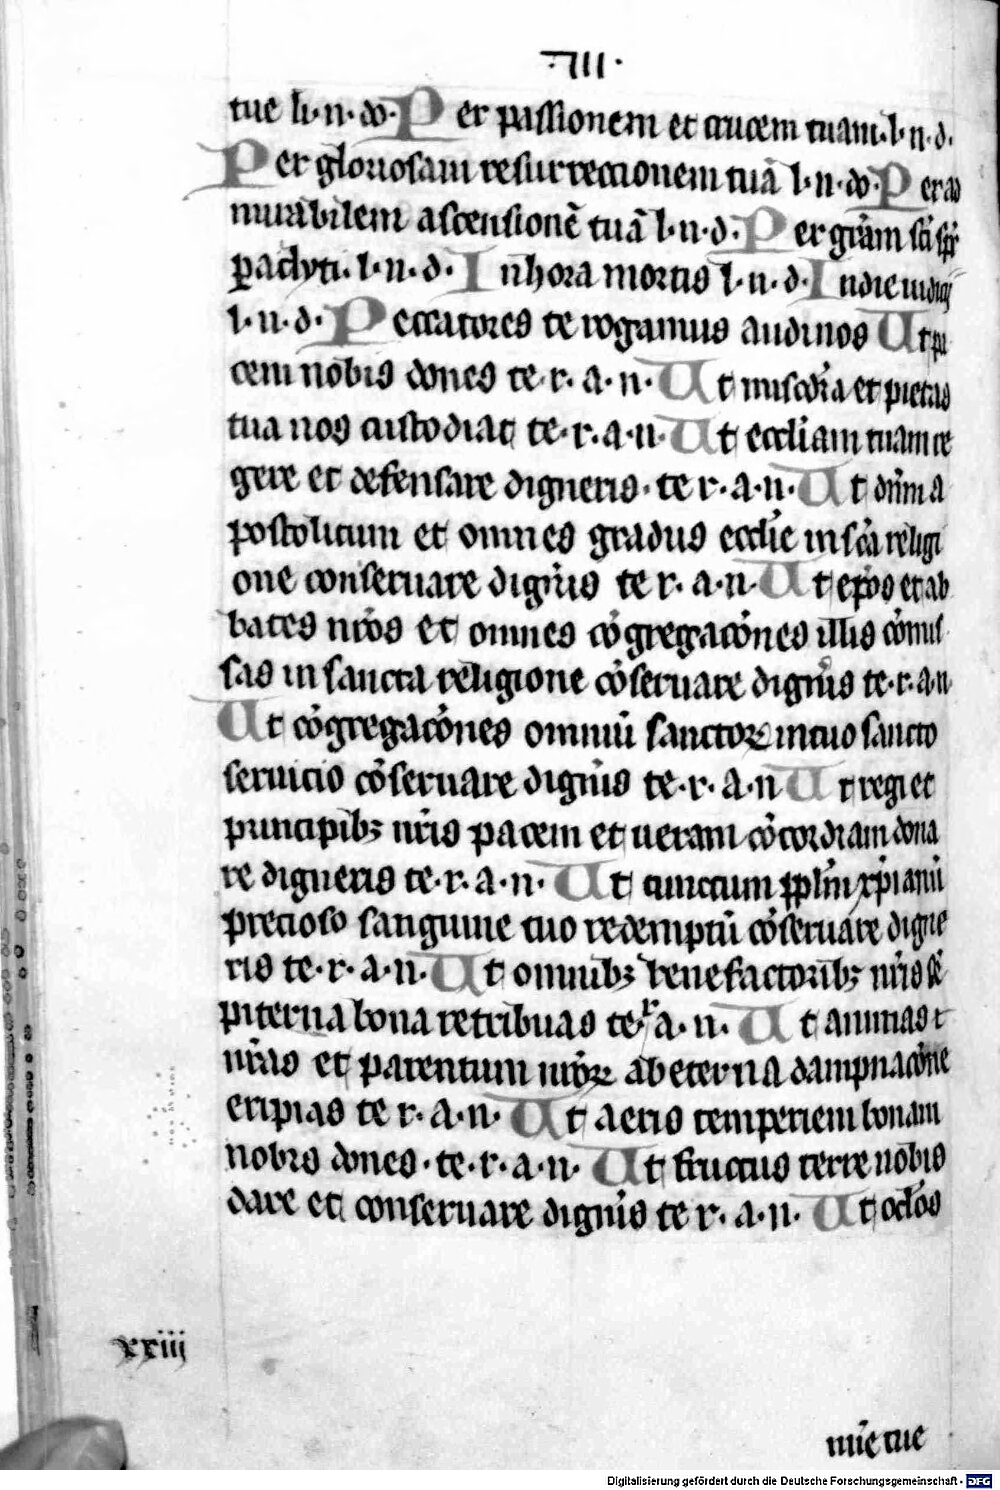 ·VII·
tue li·n·do· Per passionem et crucem tuam·l·n·d·
Per gloriosam resurreccionem tuā l·n·do· Per ad
mirabilem ascensionē tuā l·n·d· Per grām sc̄i sp̄s
paclyti·l·n·d· In hora mortis l·n·d· In die iudicij
l·n·d· Peccatores te rogamus audi nos Ut pa
cem nobis dones te·r·a·n· Ut mis̄cdīa et pietas
tua nos custodiat te·r·a·n· Ut ecc̄liam tuam re
gere et defensare digneris·te r·a·n· Ut dn̄m a
postolicum et omnes gradus eccl̄ie in sc̄a religi
one conseruare dign̄is te r·a·n· Ut ep̄os et ab
bates nr̄os et omnes cōgregacōnes illis cōmis
sas in sancta religione cōseruare dign̄is te·r·a·n
Ut cōgregacōnes omniū sanctoꝝ in tuo sancto
seruicio cōseruare dign̄is te·r·a·n Ut regi et
principibꝫ nr̄is pacem et ueram cōcordiam dona
re digneris te·r·a·n· Ut cunctum pp̄lm̄ xp̄ianū
precioso sanguine tuo redemptū cōseruare digne
ris te·r·a·n· Ut omnibꝫ benefactoribꝫ nr̄is sē
piterna bona retribuas te r a·n· Ut animas
nr̄as et parentum nr̄oꝝ ab eterna dampnacōne
eripias te r·a·n· Ut aeris temperiem bonam
nobis dones·te·r·a·n· Ut fructus terre nobis
dare et conseruare dign̄is te r·a·n· Ut oc̄los
xxiii
mīe tue
Digitalisierung gefördert durch die Deutsche Forschungsgemeinschaft - DFG